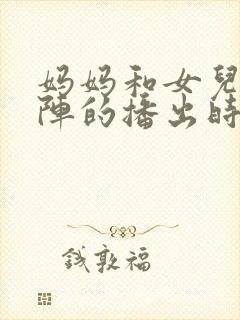 妈妈和女兒
陣的播出時
錢敦福